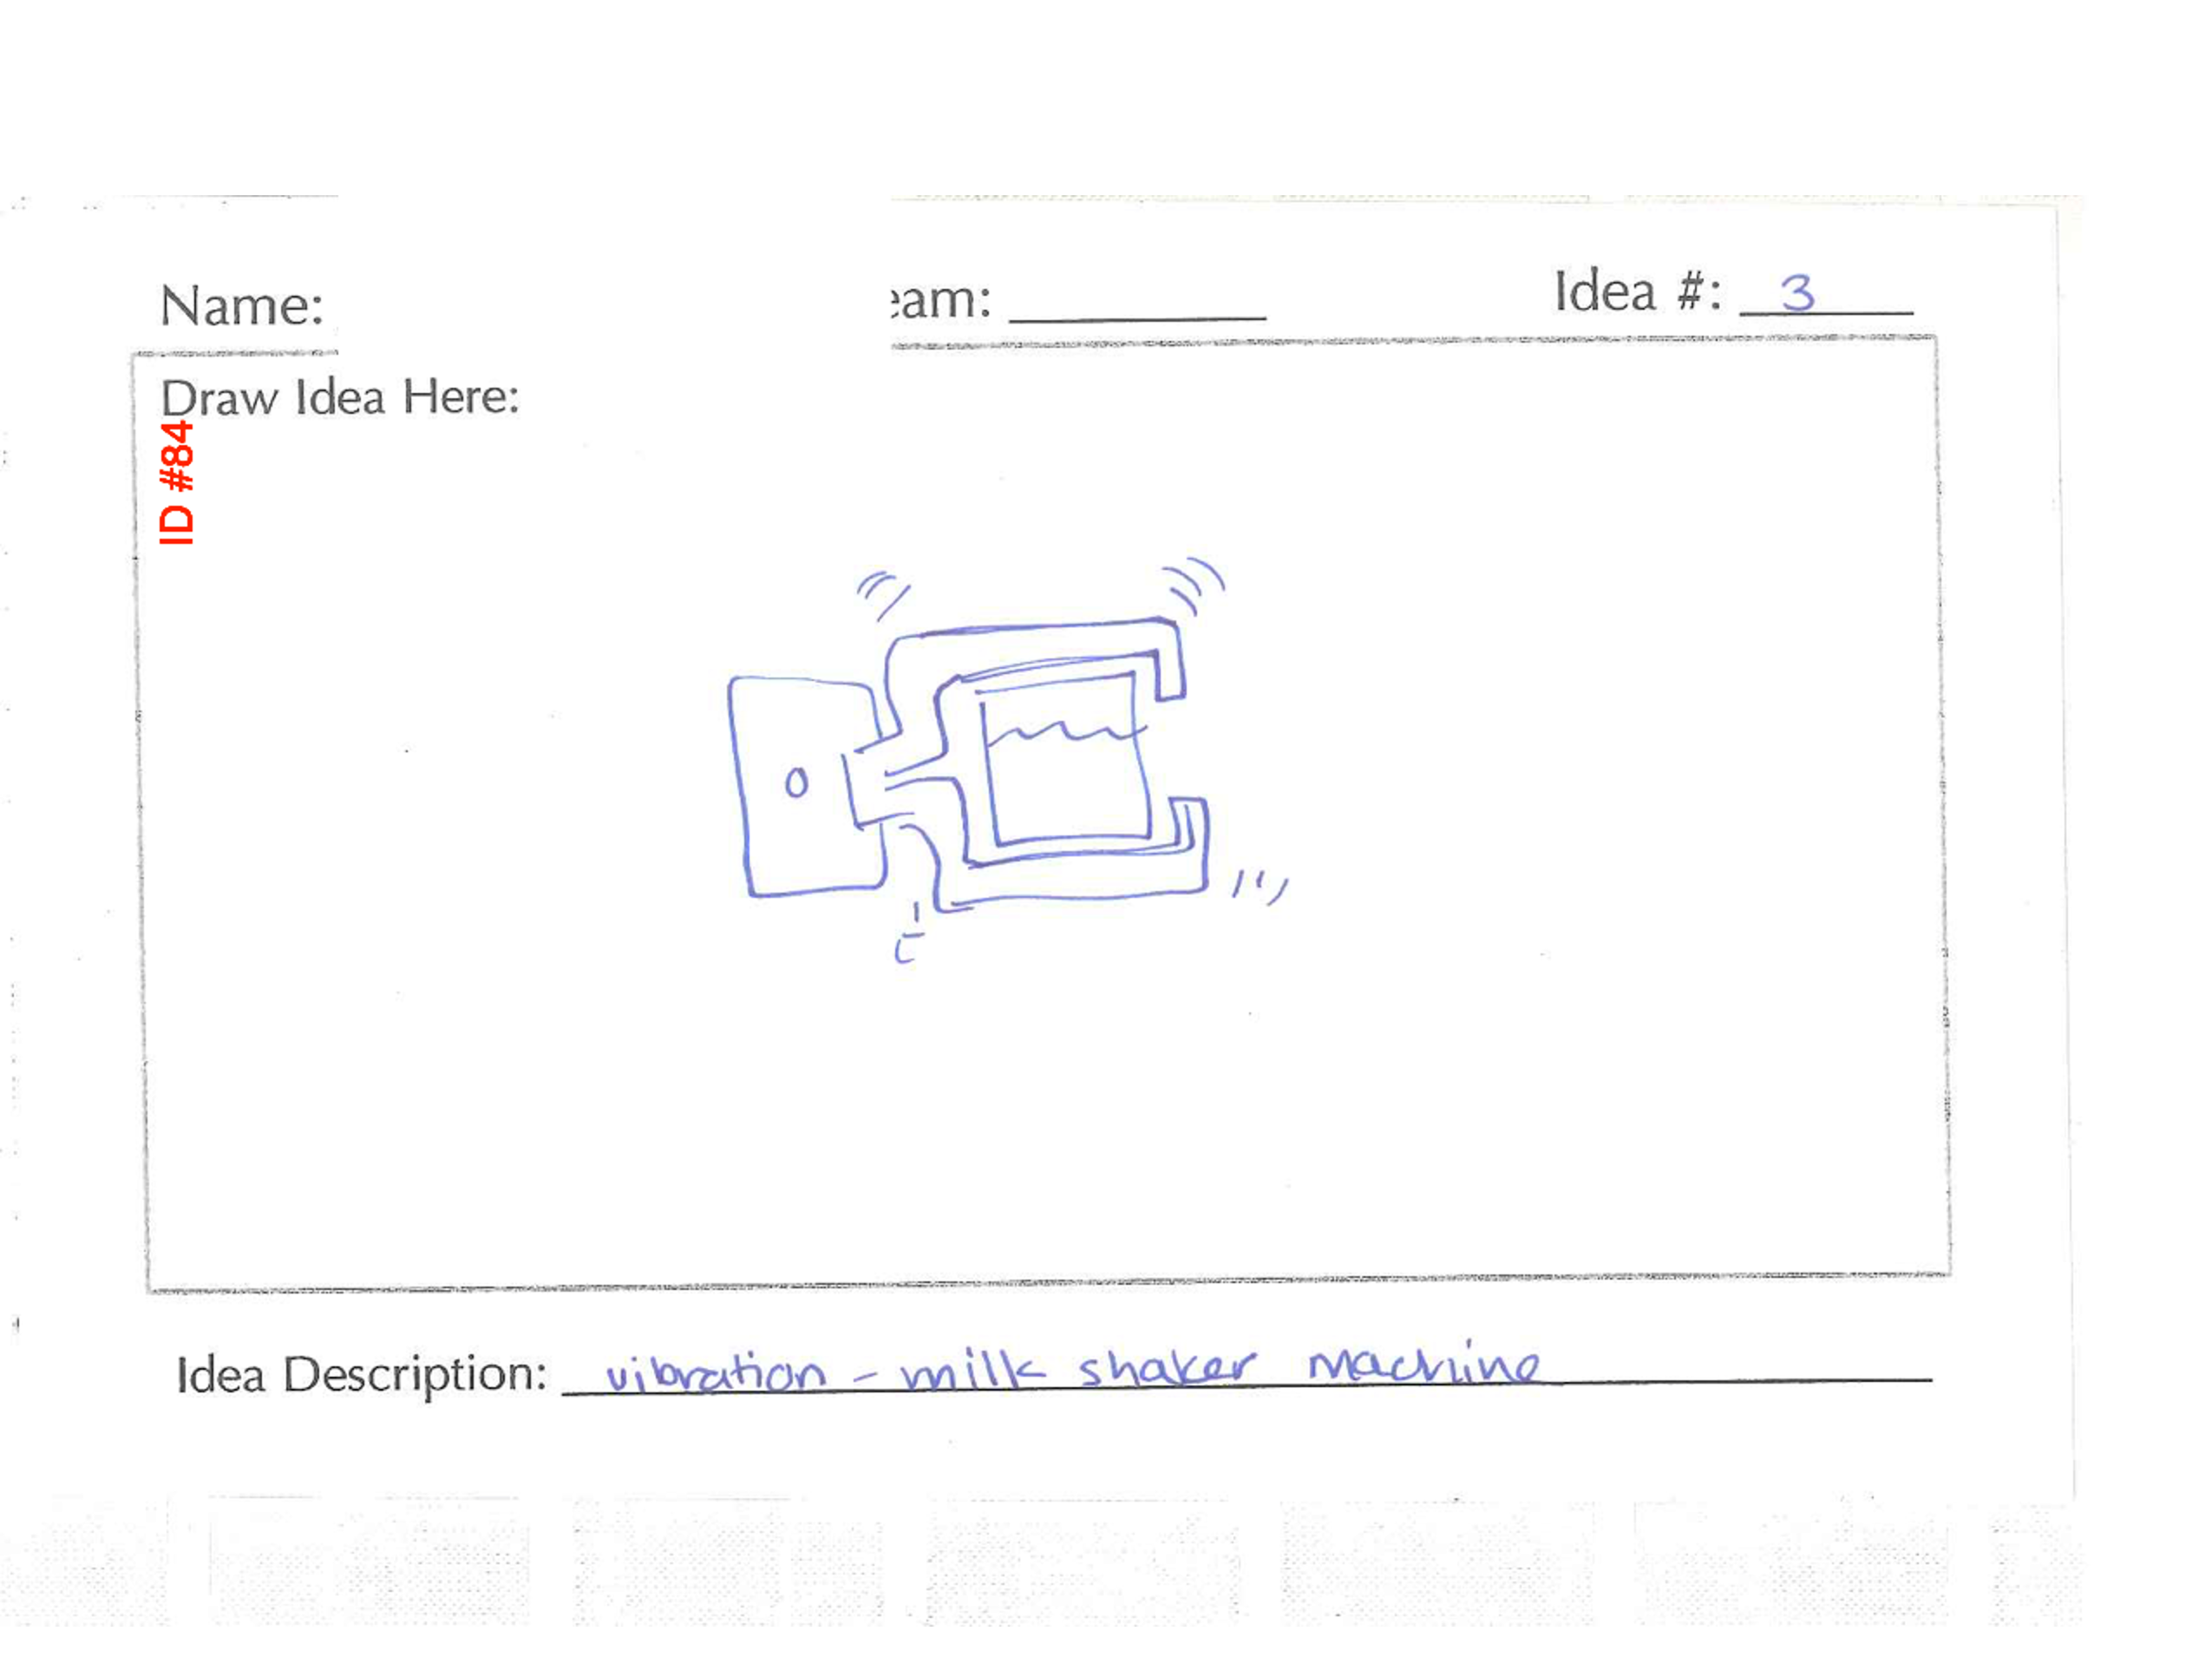 Name: eam: Idea #: 3
Draw Idea Here:
ID #84
Idea Description: vibration - milk shaker machine